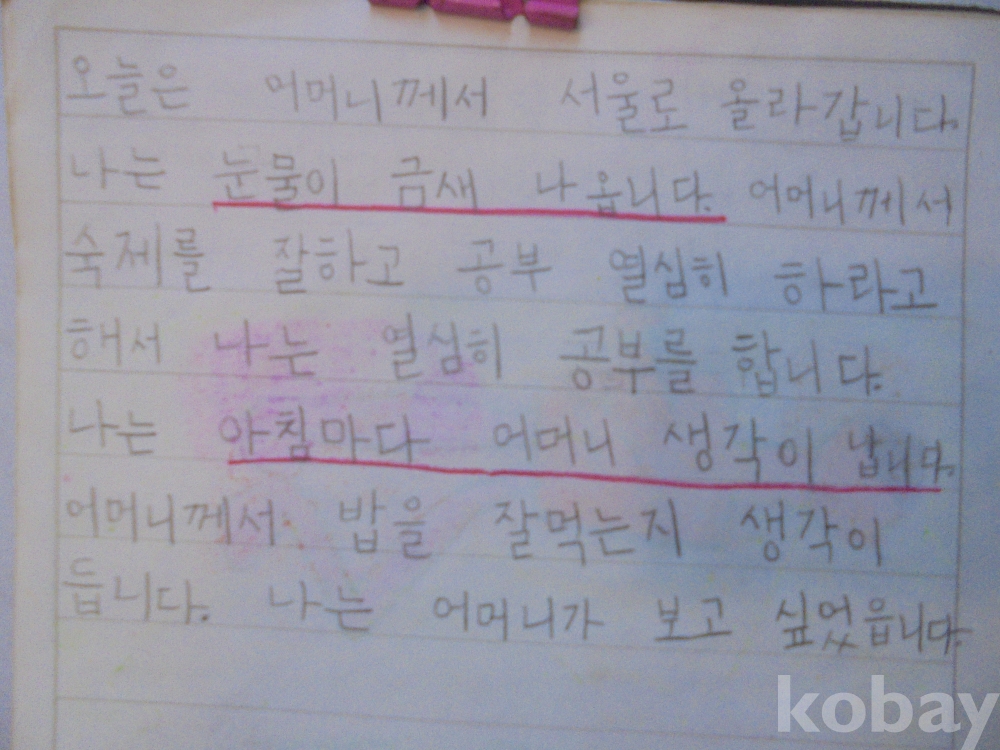 오늘은 어머니께서 서울로 올라갑니다.
나는 눈물이 금새 나옵니다. 어머니께서
숙제를 잘하고 공부 열심히 하라고
해서 나는 열심히 공부를 합니다.
나는 아침마다 어머니 생각이 납니다.
어머니께서 밥을 잘먹는지 생각이
듭니다. 나는 어머니가 보고 싶었읍니다.
kobay